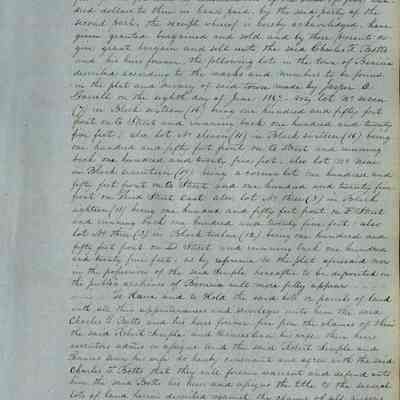 died dollars to them in hand paid, by the said party of the
second part, the receipt whereof is hereby acknowledged, have
given granted bargained and sold and by these presents do
give grant bargain and sell unto the said Charles T. Botts
and his heirs forever the following lots in the town of Benicia
described according to the marks and numbers to be found
in the plot and survey of said town made by Jasper O.
Farrell on the eighth day of June viz, lot No. seven
(7) in Block sixteen (16) being one hundred and fifty feet
front on Street and running back one hundred and twenty
five feet; also lot No eleven (11) in Block sixteen (16) being
one hundred and fifty feet front on Street and running
back one hundred and twenty five feet, also lot No nine
in Block being a corner lot one hundred and
fifty feet front on Street and one hundred and twenty five
front on Third Street east also lot No three (3) in Block
eighteen (18) being one hundred and fifty feet on Street
and running back one hundred and twenty five feet; also
lot No three (3) in Block twelve (12) being one hundred and
fifty feet front on D Street and running back one hundred
and twenty five feet, as by reference to the plot aforesaid now
in the possession of the said Semple hereafter to be deposited in
the public archives of Benicia will more fully appear
To Have and to Hold the said lots or parcels of land
with all their appurtenances and privileges unto him the said
Charles T. Botts and his heirs forever free from the claims of them
the said Robert Semple and Frances his wife their heirs
executors admrs or assigns and the said Robert Semple and
Frances his wife do hereby covenant and agree with the said
Charles T. Botts that they will forever warrant and defend unto
him the said Botts his heirs and assigns the title to the several
lots of land herein described against the claims of all persons